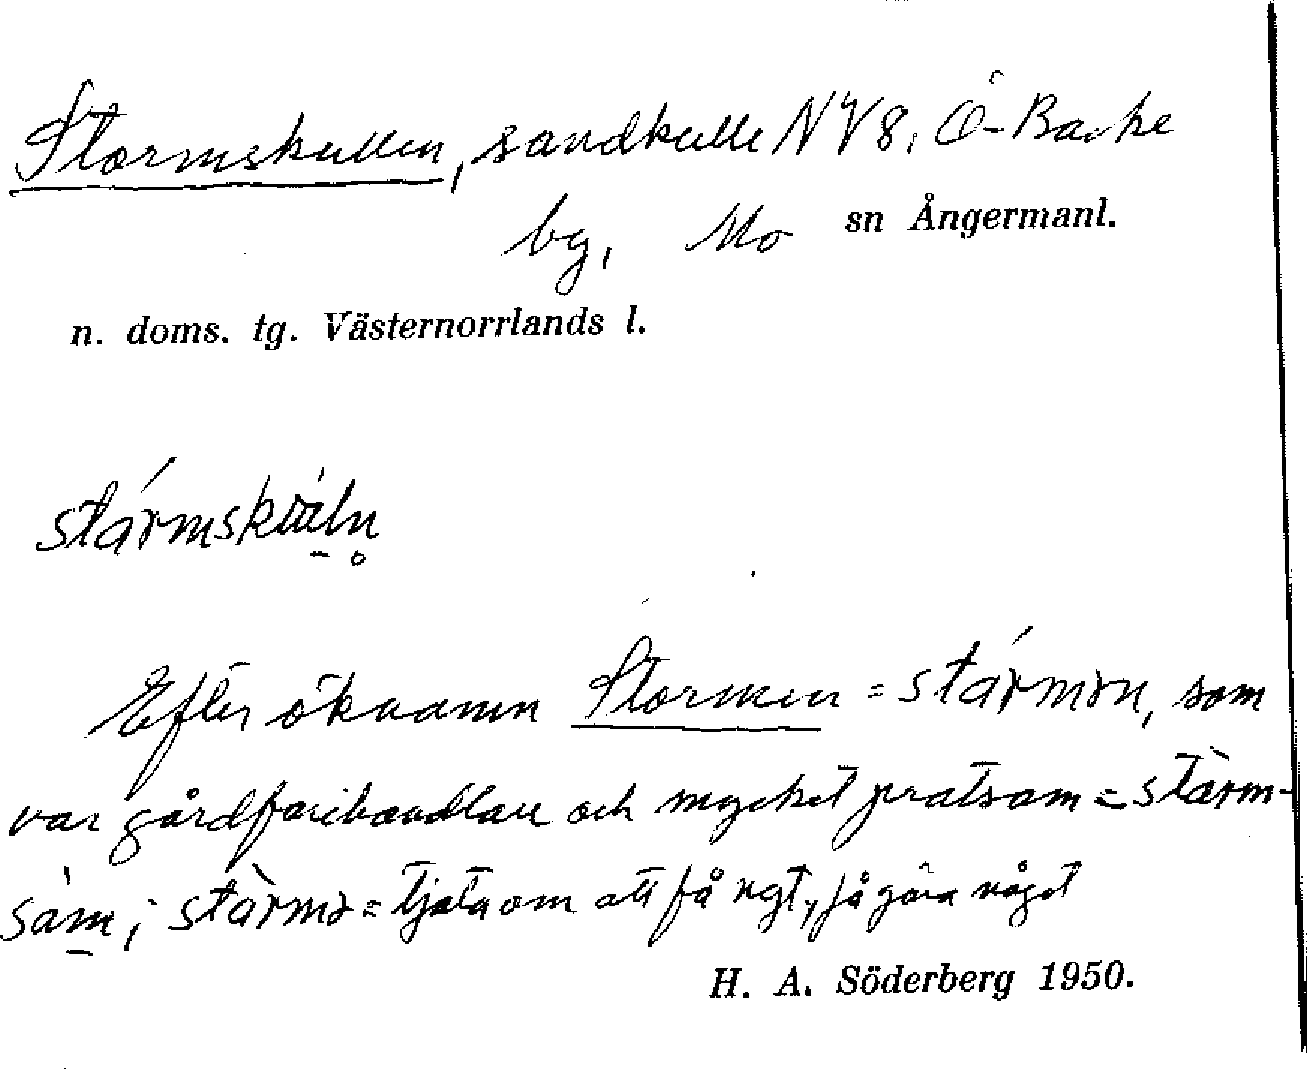 Stormskullen, sandkulle NV 8, Ö-Backe
by, Mo sn Ångermanl.
n. doms. tg. Västernorrlands l.
Efter öknamn Stormen = stármən, som
var gårdfarihandlare och mycket pratsam = stàrm-
sàm; stàrmə = tjata om att få ngt, få göra något
H. A. Söderberg 1950.